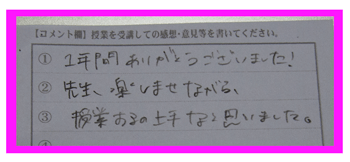 【コメント欄】授業を受講しての感想・意見等を書いてください。
① 1年間ありがとうございました!
② 先生、楽しませながら、
③ 授業するの上手なと思いました。